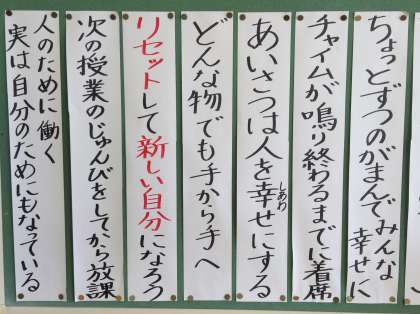 ちょっとずつのがまんでみんな
幸せに
チャイムが鳴り終わるまでに着席
あいさつは人を幸せにする
しあわ
どんな物でも手から手へ
リセットして新しい自分になろう
次の授業のじゅんびをしてから放課
人のために働く
実は自分のためにもなっている